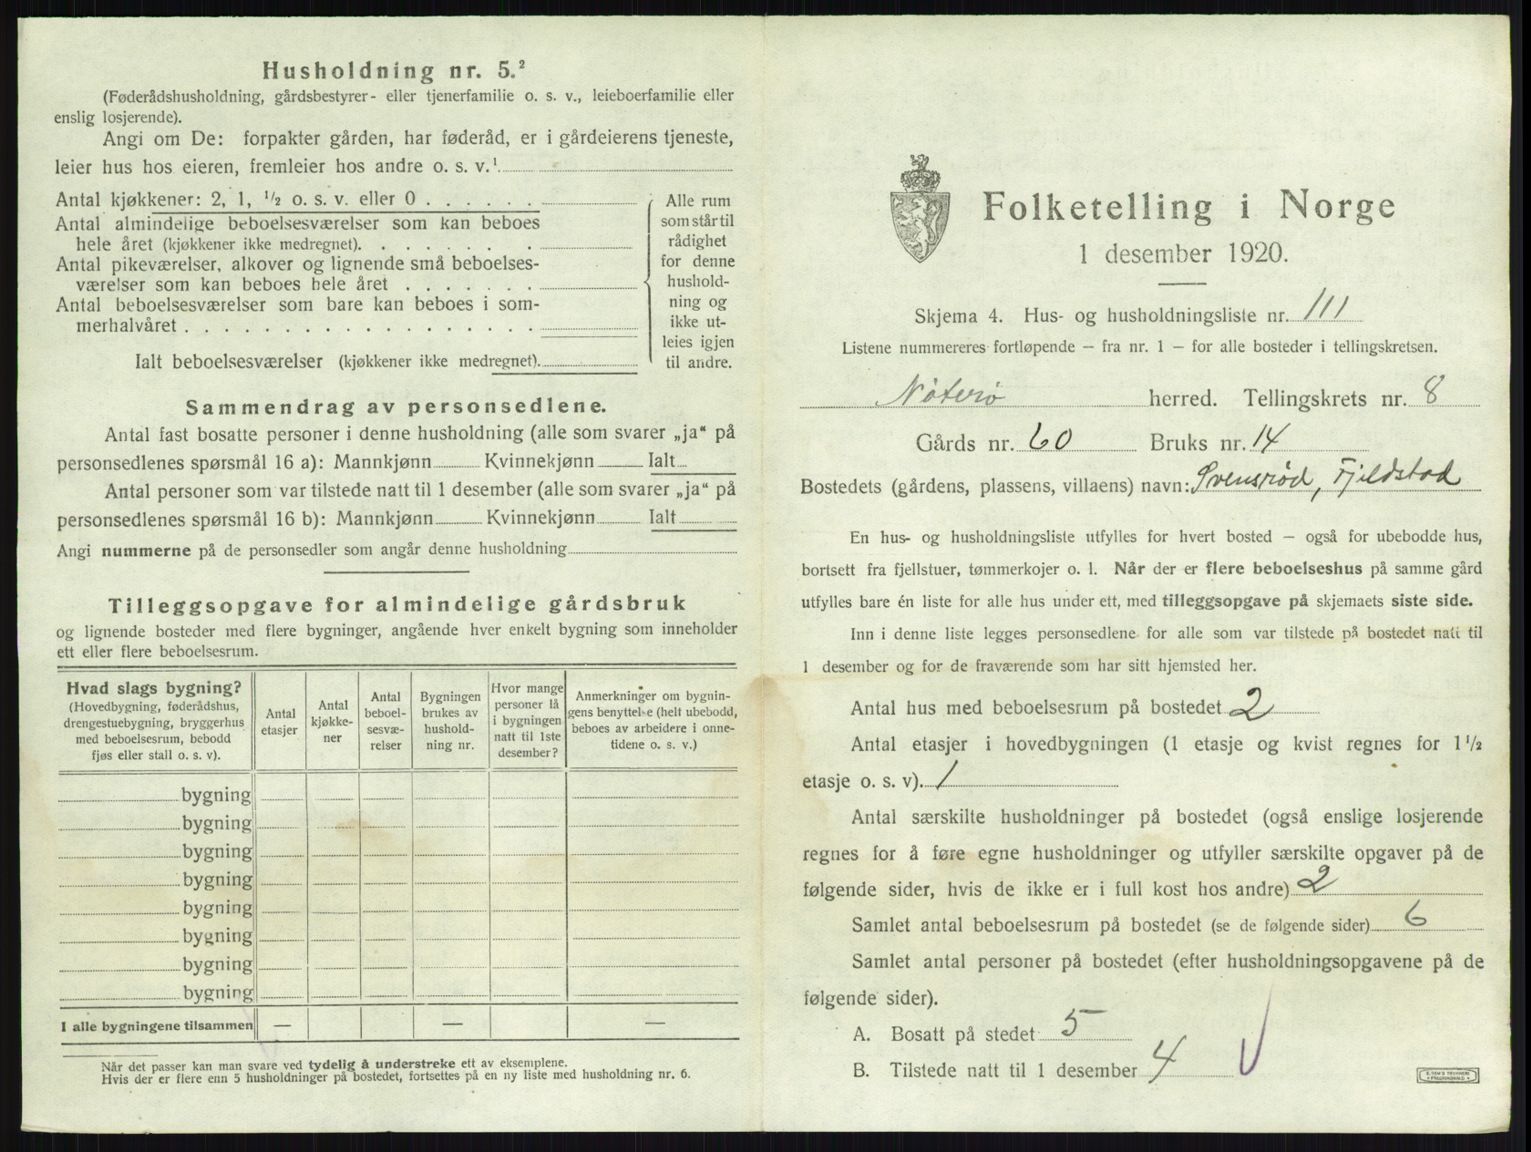 Husholdning nr. 5.²
(Føderådshusholdning, gårdsbestyrer- eller tjenerfamilie o. s. v., leieboerfamilie eller
enslig losjerende).
Angi om De: forpakter gården, har føderåd, er i gårdeierens tjeneste,
leier hus hos eieren, fremleier hos andre o. s. v.¹
Antal kjøkkener: 2, 1, ½ o. s. v. eller 0 . . . . . .
Antal almindelige beboelsesværelser som kan beboes
hele året (kjøkkener ikke medregnet). . . . . . . .
Antal pikeværelser, alkover og lignende små beboelses-
værelser som kan beboes hele året . . . . . . .
Antal beboelsesværelser som bare kan beboes i som-
merhalvåret . . . . . . . . . . . . . . . . . .
Ialt beboelsesværelser (kjøkkener ikke medregnet).
Alle rum
som står til
rådighet
for denne
hushold-
ning og
ikke ut-
leies igjen
til andre.
Sammendrag av personsedlene.
Antal fast bosatte personer i denne husholdning (alle som svarer „ja“ på
personsedlenes spørsmål 16 a): Mannkjønn Kvinnekjønn Ialt
Antal personer som var tilstede natt til 1 desember (alle som svarer „ja“ på
personsedlenes spørsmål 16 b): Mannkjønn Kvinnekjønn Ialt
Angi nummerne på de personsedler som angår denne husholdning
Tilleggsopgave for almindelige gårdsbruk
og lignende bosteder med flere bygninger, angående hver enkelt bygning som inneholder
ett eller flere beboelsesrum.
Hvad slags bygning?
(Hovedbygning, føderådshus,
drengestuebygning, bryggerhus
med beboelsesrum, bebodd
fjøs eller stall o. s. v).
Antal
etasjer
Antal
kjøkke-
ner
Antal
beboel-
sesvæ-
relser
Bygningen
brukes av
hushold-
ning nr.
Hvor mange
personer lå
i bygningen
natt til 1ste
desember?
Anmerkninger om bygnin-
gens benyttelse (helt ubebodd,
beboes av arbeidere i onne-
tidene o. s. v.)
bygning
bygning
bygning
bygning
bygning
bygning
bygning
bygning
I alle bygningene tilsammen — — —
Når det passer kan man svare ved tydelig å understreke ett av eksemplene.
Hvis der er flere enn 5 husholdninger på bostedet, fortsettes på en ny liste med husholdning nr. 6.
Folketelling i Norge
1 desember 1920.
Skjema 4. Hus- og husholdningsliste nr. 111
Listene nummereres fortløpende — fra nr. 1 — for alle bosteder i tellingskretsen.
Nøterø herred. Tellingskrets nr. 8
Gårds nr. 60 Bruks nr. 14
Bostedets (gårdens, plassens, villaens) navn: Svensrød, Fjeldstad
En hus- og husholdningsliste utfylles for hvert bosted — også for ubebodde hus,
bortsett fra fjellstuer, tømmerkojer o. l. Når der er flere beboelseshus på samme gård
utfylles bare én liste for alle hus under ett, med tilleggsopgave på skjemaets siste side.
Inn i denne liste legges personsedlene for alle som var tilstede på bostedet natt til
1 desember og for de fraværende som har sitt hjemsted her.
Antal hus med beboelsesrum på bostedet 2
Antal etasjer i hovedbygningen (1 etasje og kvist regnes for 1½
etasje o. s. v). 1
Antal særskilte husholdninger på bostedet (også enslige losjerende
regnes for å føre egne husholdninger og utfyller særskilte opgaver på de
følgende sider, hvis de ikke er i full kost hos andre) 2
Samlet antal beboelsesrum på bostedet (se de følgende sider) 6
Samlet antal personer på bostedet (efter husholdningsopgavene på de
følgende sider).
A. Bosatt på stedet 5
B. Tilstede natt til 1 desember 4